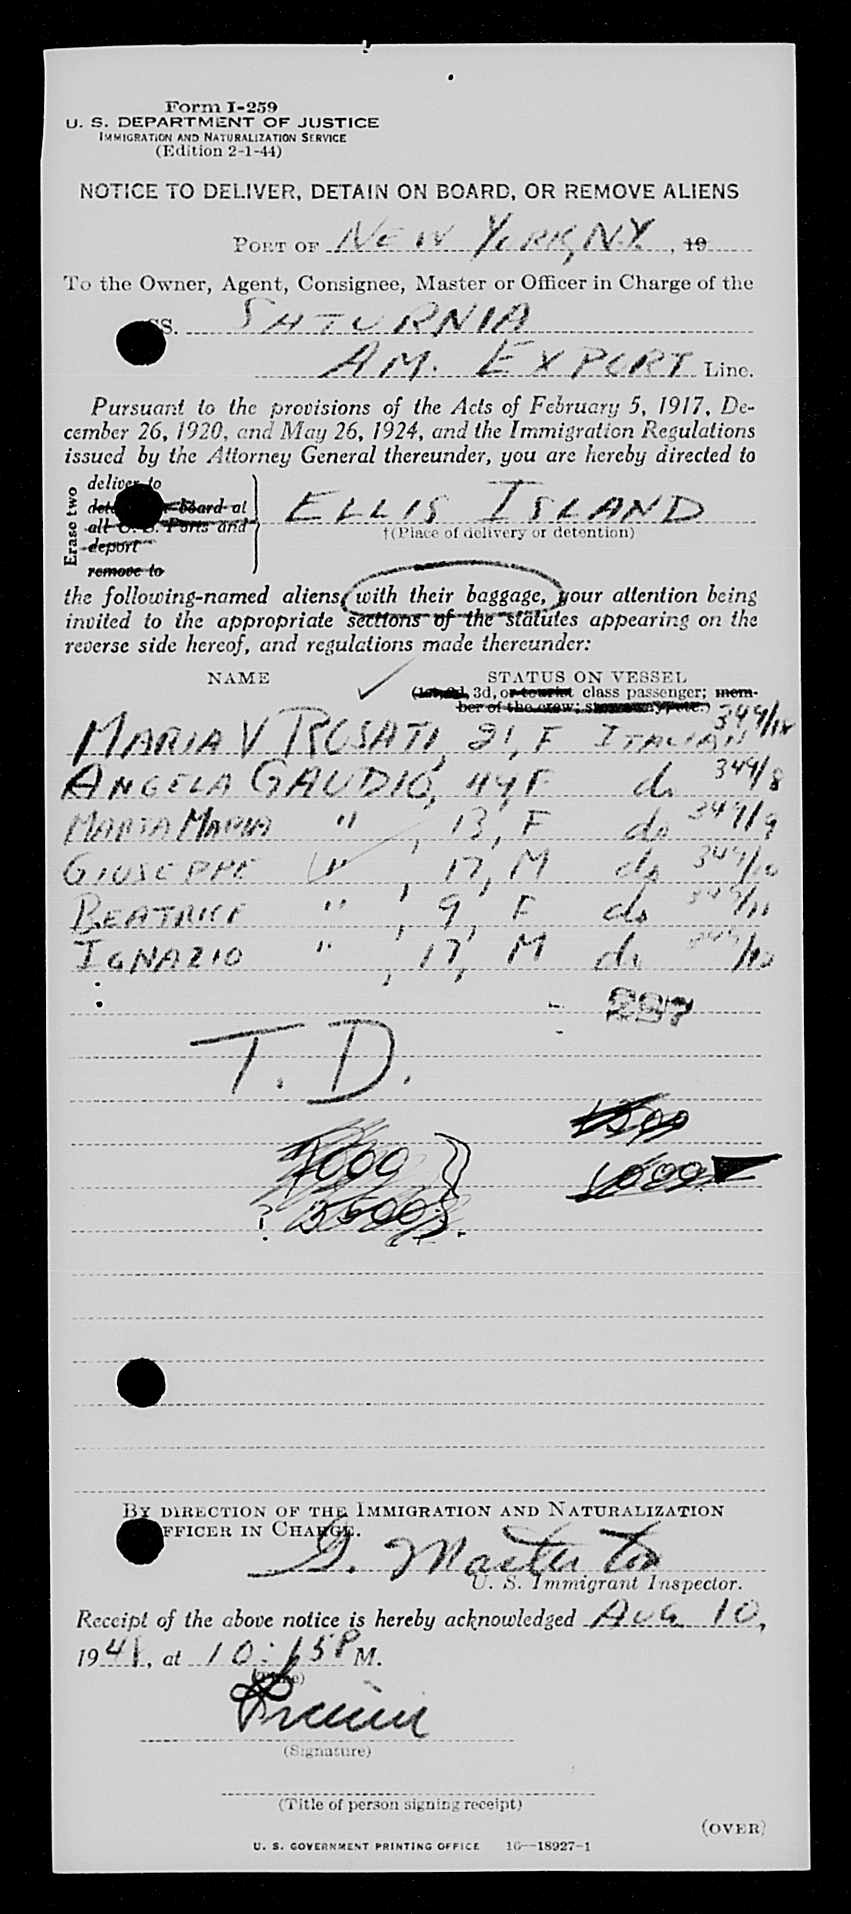 Form I-259
U. S. DEPARTMENT OF JUSTICE
IMMIGRATION AND NATURALIZATION SERVICE
(Edition 2-1-44)
NOTICE TO DELIVER, DETAIN ON BOARD, OR REMOVE ALIENS
PORT OF NEW YORK, N.Y. , 19
To the Owner, Agent, Consignee, Master or Officer in Charge of the
SS. SATURNIA
AM. EXPORT Line.
Pursuant to the provisions of the Acts of February 5, 1917, De-
cember 26, 1920, and May 26, 1924, and the Immigration Regulations
issued by the Attorney General thereunder, you are hereby directed to
Erase two
deliver to
board at
all U. S. Ports and
deport
remove to
ELLIS ISLAND
†(Place of delivery or detention)
the following-named aliens, with their baggage, your attention being
invited to the appropriate sections of the statutes appearing on the
reverse side hereof, and regulations made thereunder:
NAME STATUS ON VESSEL
3d, or tourist class passenger; mem-
ber of the crew;
MARIA V ROSATI, 21, F ITALIAN
ANGELA GAUDIO, 44, F do 349/8
MARIA " , 13, F do 349/9
GIUSEPPE " , 17, M do 349/10
BEATRICE " , 9, F do 349/11
IGNAZIO " , 17, M do
297
T. D.
1500
1000
By DIRECTION OF THE IMMIGRATION AND NATURALIZATION
OFFICER IN CHARGE.
U. S. Immigrant Inspector.
Receipt of the above notice is hereby acknowledged AUG. 10,
1948, at 10:15 P M.
(Time)
(Signature)
(Title of person signing receipt)
(OVER)
U. S. GOVERNMENT PRINTING OFFICE 16—18927-1